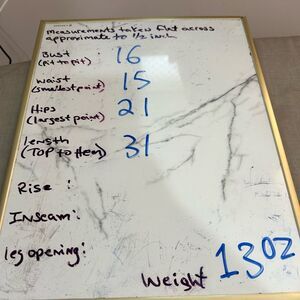 Measurements taken flat across
approximate to 1/2 inch
Bust : 16
(Pit to Pit)
Waist : 15
(smallest point)
Hips : 21
(largest point)
length : 31
(TOP to Hem)
Rise :
Inseam :
leg opening :
Weight 13oz